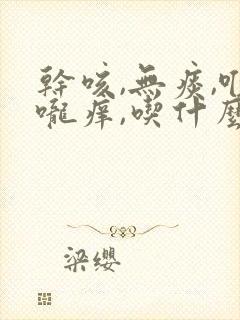 幹咳,無痰,
嚨痒,喫什麼
梁纓